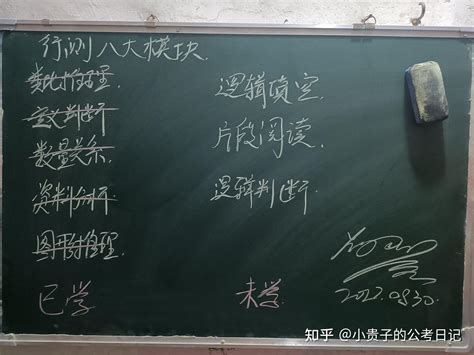 行测八大模块
类比推理
定义判断
数量关系
资料分析
图形推理
已学
逻辑填空
片段阅读
逻辑判断
未学
2022.0830
知乎 @小贵子的公考日记